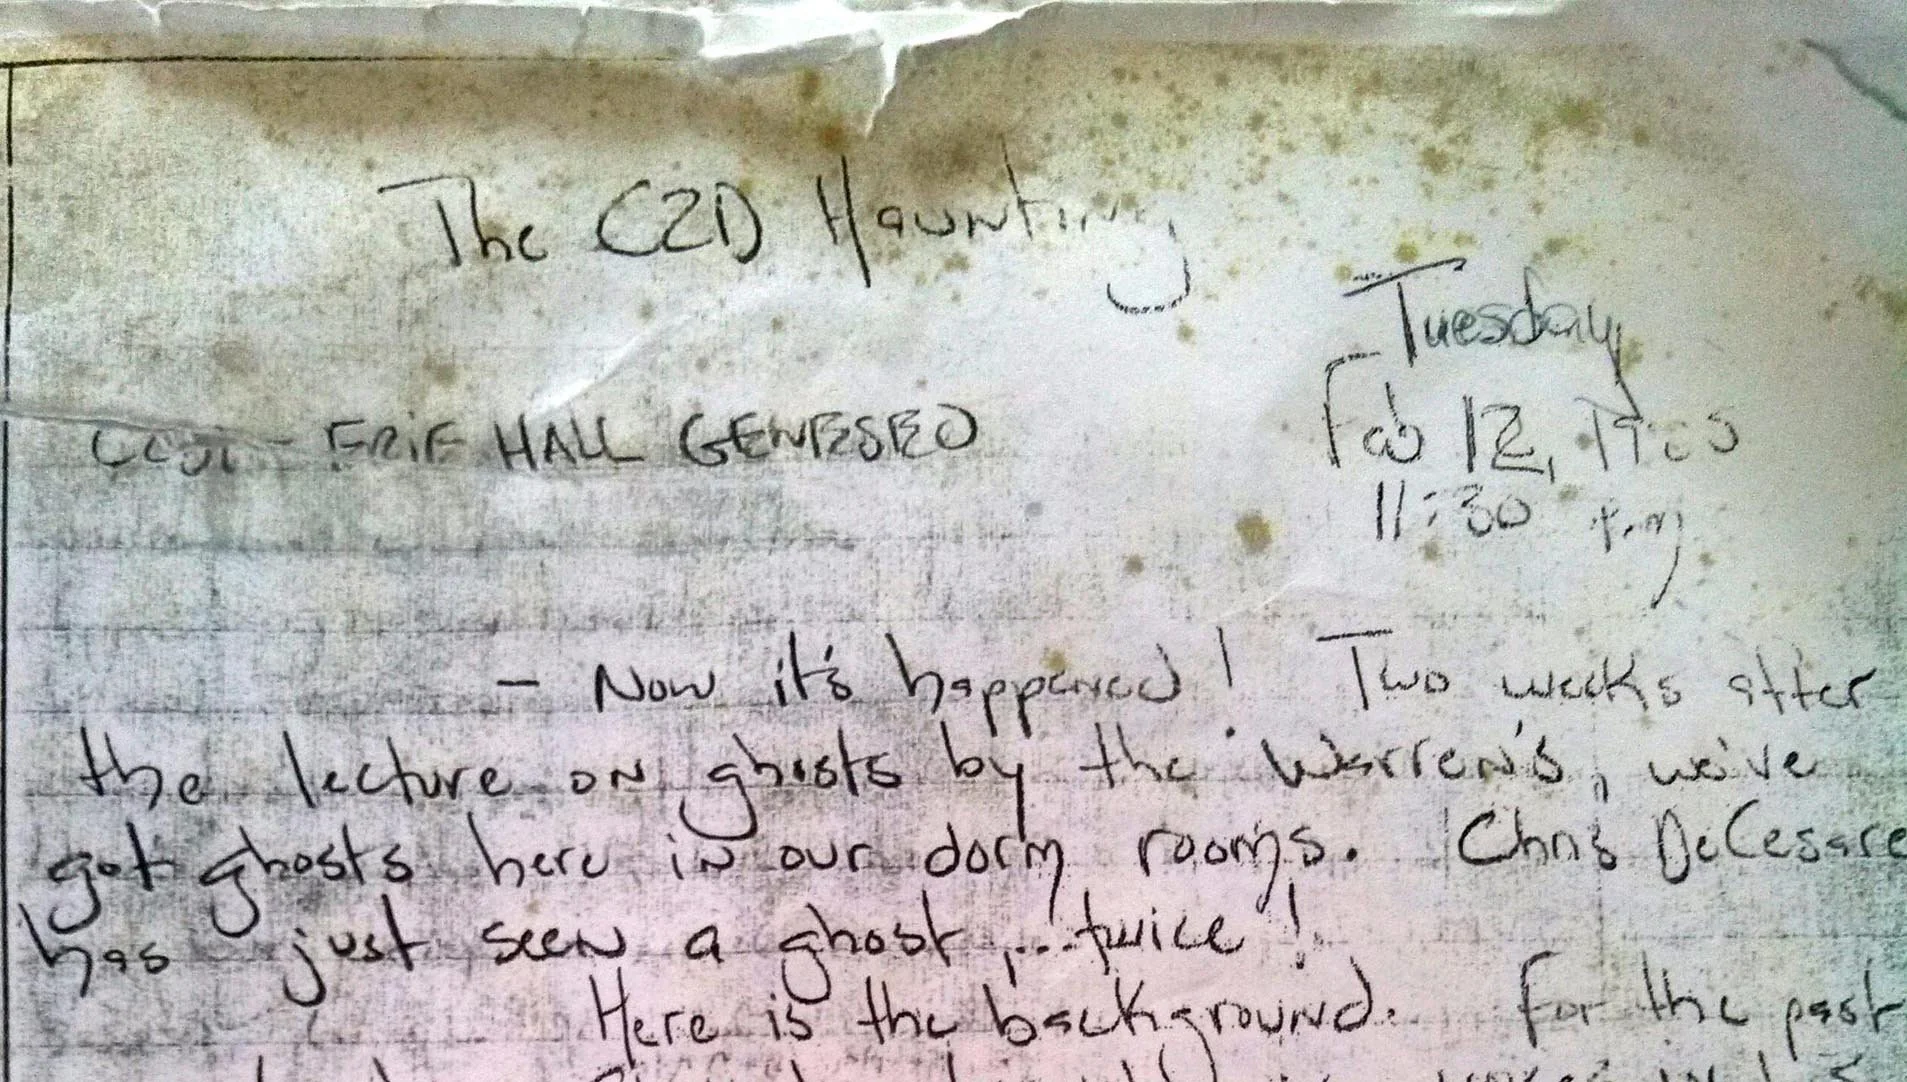 The C2D Haunting
Tuesday
Feb 12,
ERIE HALL GENESEO
11:30 p.m
- Now it's happened! Two weeks after
the lecture on ghosts by the Warren's, we've
got ghosts here in our dorm rooms. Chris DeCesare
has just seen a ghost ... twice!
Here is the background. For the past